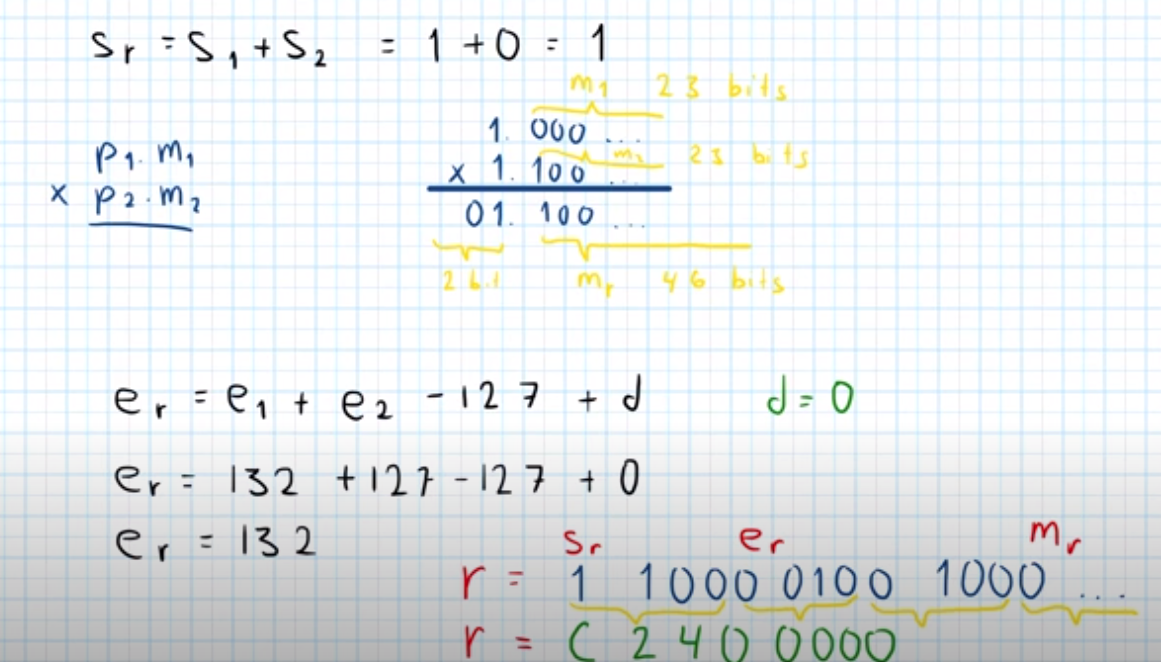 Sr = S1 + S2 = 1 + 0 = 1
m1 23 bits
1. 000 ...
p1. m1
m2 23 bits
x 1. 100 ...
x p2. m2
01. 100 ...
2 bit mr 46 bits
er = e1 + e2 - 127 + d d = 0
er = 132 + 127 - 127 + 0
er = 132
Sr er mr
r = 1 1000 0100 1000 ...
r = C 2 4 0 0000